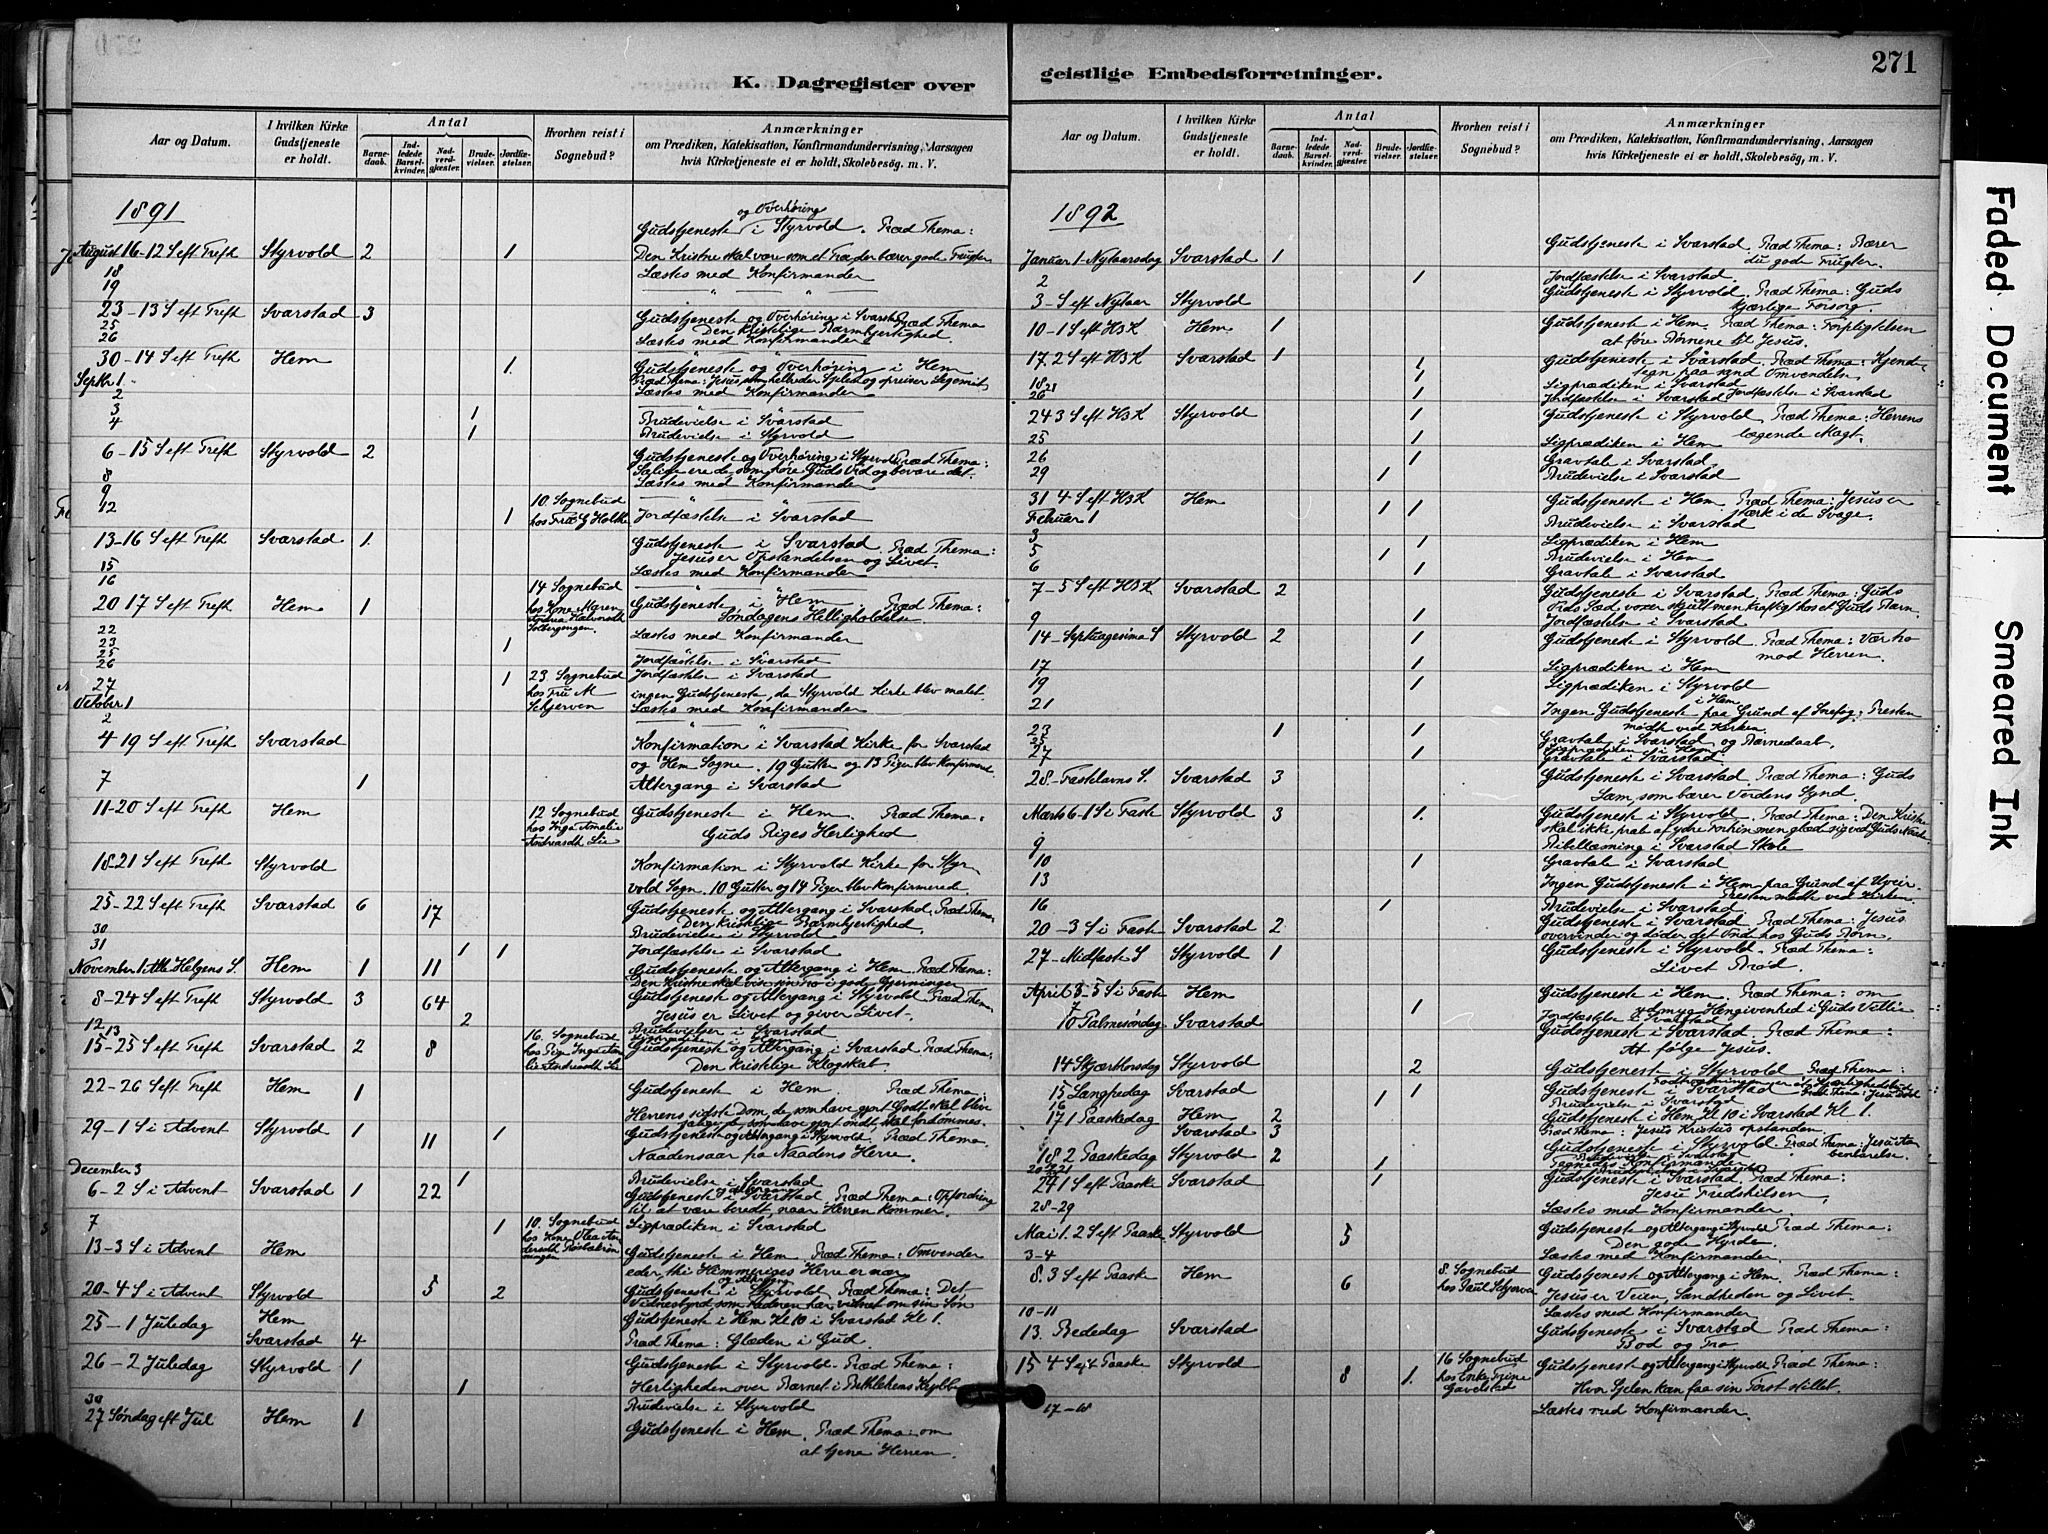 271
K. Dagregister over
geistlige Embedsforretninger.
Aar og Datum.
I hvilken Kirke Gudstjeneste er holdt.
Antal
Barnedaab.
Indledede Barselkvinder.
Nadverdgjæster.
Brudevielser.
Jordfæstelser.
Hvorhen reist i Sognebud?
Anmærkninger
om Prædiken, Katekisation, Konfirmandundervisning, Aarsagen
hvis Kirketjeneste ei er holdt, Skolebesög, m. V.
1891
og Overhøring
Gudstjeneste i Styrvold. Præd Thema:
August 16-12 S eft Trefh Styrvold 2 1 Den Kristne skal være som et Træ der bærer gode Frugter
18 Læstes med Konfirmander
19 " " "
23-13 S eft Trefh Svarstad 3 Gudstjeneste og Overhøring i Svarstad Præd Thema
25 Den Kristelige Barmhjertighed.
26 Læstes med Konfirmander
30-14 S eft Trefh Hem 1 Gudstjeneste og Overhøring i Hem
Septbr 1 Præd Thema: Jesus
2 Læstes med Konfirmander
3 1 Brudevielse i Svarstad
4 1 Brudevielse i Styrvold
6-15 S eft Trefh Styrvold 2 Gudstjeneste og Overhøring i Styrvold Præd Thema:
8 Salige ere de, som høre Guds Ord og bevare det.
9 Læstes med Konfirmander
12 10 Sognebud hos Fru G Holtke 1 Jordfæstelse i Svarstad
13-16 S eft Trefh Svarstad 1 Gudstjeneste i Svarstad Præd Thema:
15 Jesus er Opstandelsen og Livet.
16 Læstes med Konfirmander
14 Sognebud hos Kone Maren
20 17 S eft Trefh Hem 1 Gudstjeneste i Hem Præd Thema:
Søndagens Helligholdelse
22 Læstes med Konfirmander
23 1
25
26 Jordfæstelse i Svarstad
27 1 23 Sognebud hos Fru M Schjerven Jordfæstelse i Svarstad
ingen Gudstjeneste, da Styrvold Kirke blev malet.
October 1 Læstes med Konfirmander
2 " "
4 19 S eft Trefh Svarstad Konfirmation i Svarstad Kirke for Svarstad
og Hem Sogne. 19 Gutter og 13 Piger blev Konfirmered.
7 1 Altergang i Svarstad
11-20 S eft Trefh Hem 12 Sognebud hos Inga Amalie Andreasdt Lie Gudstjeneste i Hem Præd Thema:
Guds Riges Herlighed
18-21 S eft Trefh Styrvold Konfirmation i Styrvold Kirke for Styr
vold Sogn. 10 Gutter og 14 Piger blev Konfirmerede
25-22 S eft Trefh Svarstad 6 17 Gudstjeneste og Altergang i Svarstad. Præd Thema:
Den kristelige Barmhjertighed.
30 Brudevielse i Styrvold
31 1 1 Jordfæstelse i Svarstad
November 1 Alle Helgens S. Hem 1 11 Gudstjeneste og Altergang i Hem. Præd Thema:
Den Kristne skal vise sin Tro i gode Gjerninger
8-24 S eft Trefh Styrvold 3 64 Gudstjeneste og Altergang i Styrvold Præd Thema
Jesus er Livet og giver Livet.
12 13 2 Brudevielser i Svarstad
15-25 S eft Trefh Svarstad 2 8 16. Sognebud hos Pige Inga Amalie Andreasdt Lie Gudstjeneste og Altergang i Svarstad Præd Thema:
Den Kristelige Klogskab
22-26 S eft Trefh Hem 1 Gudstjeneste i Hem Præd Thema:
Herrens sidste Dom, de som have gjort Godt skal blive
salige, de, som have gjort ondt, skal fordømmes.
29-1 S i Advent Styrvold 1 11 1 Gudstjeneste og Altergang i Styrvold. Præd Thema
Naadensaar fra Naadens Herre.
December 3 1 Brudevielse i Svarstad
6-2 S i Advent Svarstad 1 22 Gudstjeneste og Altergang i Svarstad Præd Thema: Opfordring
til at være beredt, naar Herren kommer.
7 1 10. Sognebud hos Kone Olea Ligprædiken i Svarstad
13-3 S i Advent Hem Gudstjeneste i Hem Præd Thema: Omvender
eder, thi Himmeriges Herre er nær
og Altergang
20-4 S i Advent Styrvold 5 2 Gudstjeneste i Styrvold Præd Thema: Det
Vidnesbyrd som Faderen har vidnet om sin Søn
25-1 Juledag Hem Gudstjeneste i Hem Kl 10 i Svarstad Kl 1.
Svarstad 4 Præd Thema: Glæden i Gud
26-2 Juledag Styrvold 1 Gudstjeneste i Styrvold. Præd Thema:
1 Herligheden over Barnet i Bethlehems Krybbe
30 Brudevielse i Styrvold
27 Søndag eft Jul Hem 1 Gudstjeneste i Hem Præd Thema: om
at tjene Herren
Aar og Datum.
I hvilken Kirke Gudstjeneste er holdt.
Antal
Barnedaab.
Indledede Barselkvinder.
Nadverdgjæster.
Brudevielser.
Jordfæstelser.
Hvorhen reist i Sognebud?
Anmærkninger
om Prædiken, Katekisation, Konfirmandundervisning, Aarsagen
hvis Kirketjeneste ei er holdt, Skolebesög, m. V.
1892
Januar 1-Nytaarsdag Svarstad 1 Gudstjeneste i Svarstad. Præd Thema: Bærer
du gode Frugter.
2 1 Jordfæstelse i Svarstad
3-S eft Nytaar Styrvold Gudstjeneste i Styrvold Præd Thema: Guds
kjærlige Forsorg.
10-1 S eft H3K Hem 1 Gudstjeneste i Hem Præd Thema: Forpligtelsen
at føre Børnene til Jesus.
17. 2 S eft H3K Svarstad 1 1 Gudstjeneste i Svarstad Præd Thema: Kjende
tegn paa sand Omvendelse
18 21 1 Ligprædiken i Svarstad
26 1 Jordfæstelse i Svarstad Jordfæstelse i Svarstad
24 3 S eft H3K Styrvold 1 Gudstjeneste i Styrvold Præd Thema: Herrens
lægende Magt.
25 1 Ligprædiken i Hem
26 1 Gravtale i Svarstad
29 1 Brudevielse i Svarstad
31 4 S eft H3K Hem 1 1 Gudstjeneste i Hem Præd Thema: Jesus er
stærk i de Svage.
Februar 1 Brudevielse i Svarstad
3 1 Ligprædiken i Hem
5 1 Brudevielse i Hem
6 1 Gravtale i Svarstad
7-5 S eft H3K Svarstad 2 Gudstjeneste i Svarstad. Præd Thema: Guds
Ords Sæd voxer skjult men kraftig hos et Guds Barn
9 1 Jordfæstelse i Svarstad
14-Septuagesima S Styrvold 2 1 Gudstjeneste i Styrvold Præd Thema: Vær tro
mod Herren.
17 1 Ligprædiken i Hem
19 1 Ligprædiken i Styrvold
21 i Hem
Ingen Gudstjeneste paa Grund af Snefog; Presten
mødte ved Kirken
23 1 1 Gravtale i Svarstad og Barnedaab.
25 Ligprædiken i Hem
27 1 Gravtale i Svarstad
28-Fastelavns S. Svarstad 3 Gudstjeneste i Svarstad Præd Thema: Guds
Lam, som bærer Verdens Synd.
Marts 6-1 S i Faste Styrvold 3 1 Gudstjeneste i Styrvold. Præd Thema: Den Kristne
9 Bibellæsning i Svarstad Skole
10 1 Gravtale i Svarstad
13 Ingen Gudstjeneste i Hem paa Grund af Uveir.
Presten mødte ved Kirken
16 1 Brudevielse i Svarstad
20-3 S i Faste Svarstad 2 Gudstjeneste i Svarstad Præd Thema: Jesus
overvinder og døder det Onde hos Guds Børn.
27-Midfaste S Styrvold 1 Gudstjeneste i Styrvold Præd Thema:
Livet Brød.
April 3-5 S i Faste Hem Gudstjeneste i Hem. Præd Thema: om
ydmyg Hengivenhed i Guds Villie
7 1 Jordfæstelse i Svarstad
10 Palmesøndag Svarstad Gudstjeneste i Svarstad Præd Thema:
At følge Jesus.
14 Skjærthorsdag Styrvold 2 Gudstjeneste i Styrvold Præd Thema:
15 Langfredag Svarstad 1 1 Gudstjeneste i Svarstad
16 Brudevielse i Svarstad
17 1 Paaskedag Hem 2 Gudstjeneste i Hem Kl 10 i Svarstad Kl 1.
Svarstad 3 Præd Thema: Jesus Kristus opstanden.
18 2 Paaskedag Styrvold 2 1 Gudstjeneste i Styrvold. Præd Thema: Jesu Aa
benbarelse.
20 21 Brudevielse i Svarstad
24 1 S eft Paaske Svarstad 1 Gudstjeneste i Svarstad. Præd Thema:
Jesu Fredshilsen
28-29 Læstes med Konfirmander.
Mai 1. 2 S eft Paaske Styrvold 5 Gudstjeneste og Altergang i Styrvold Præd Thema:
Den gode Hyrde.
3-4 Læstes med Konfirmander
8. 3 S eft Paaske Hem 6 8. Sognebud hos Paul Schjerven Gudstjeneste og Altergang i Hem. Præd Thema:
Jesus er Veien, Sandheden og Livet.
10-11 Læstes med Konfirmander
13. Bededag Svarstad Gudstjeneste i Svarstad Præd Thema:
Bod og Tro
15 4 S eft Paaske Styrvold 8 1 16 Sognebud hos Enke Trine Gavelstad Gudstjeneste og Altergang i Styrvold Præd Thema:
Hvor Sjelen kan faa sin Tørst stillet.
17-18 Læstes med Konfirmander.
Faded Document
Smeared Ink